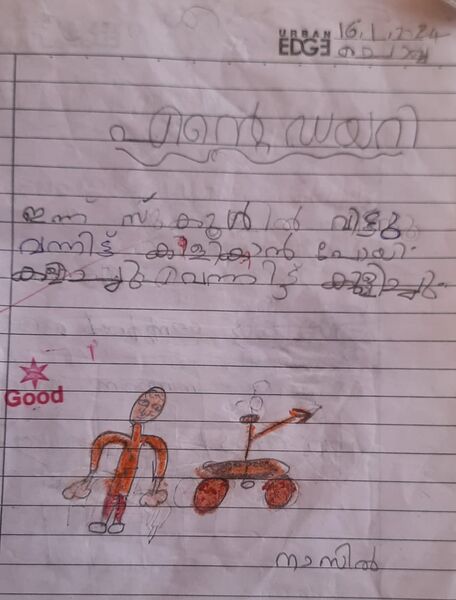 URBAN
EDGE
16.1.2024
ചൊവ്വ
എന്റെ ഡയറി
ഇന്ന് സ്കൂളിൽ വിട്ടു
വന്നിട്ട് കളിക്കാൻ പോയി.
കളിച്ചു വന്നിട്ട് കുളിച്ചു.
Good
നാസിൽ